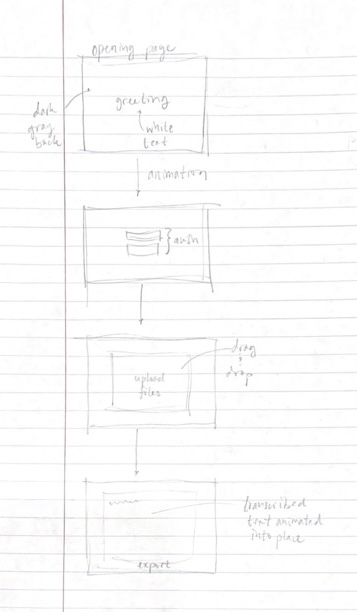 opening page
dark
gray
back
greeting
white
text
animation
auth
drag
&
drop
upload
files
transcribed
text animated
into place
export